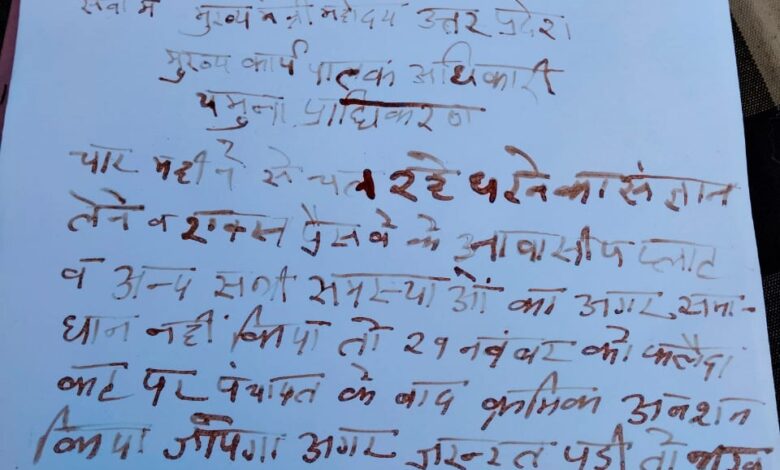 सेवा में मुख्य मन्त्री महोदय उत्तर प्रदेश।
मुख्य कार्य पालक अधिकारी
यमुना प्राधिकरण
चार महीने से चल रहे धरने का संज्ञान
लेने व एक्स प्रैस वे के आवासीय प्लाट
व अन्य सभी समस्याओं का अगर समा-
धान नहीं किया तो २१ नवंबर को फलैदा
कट पर पंचायत के बाद क्रमिक अनशन
किया जायेगा अगर जरूरत पडी तो